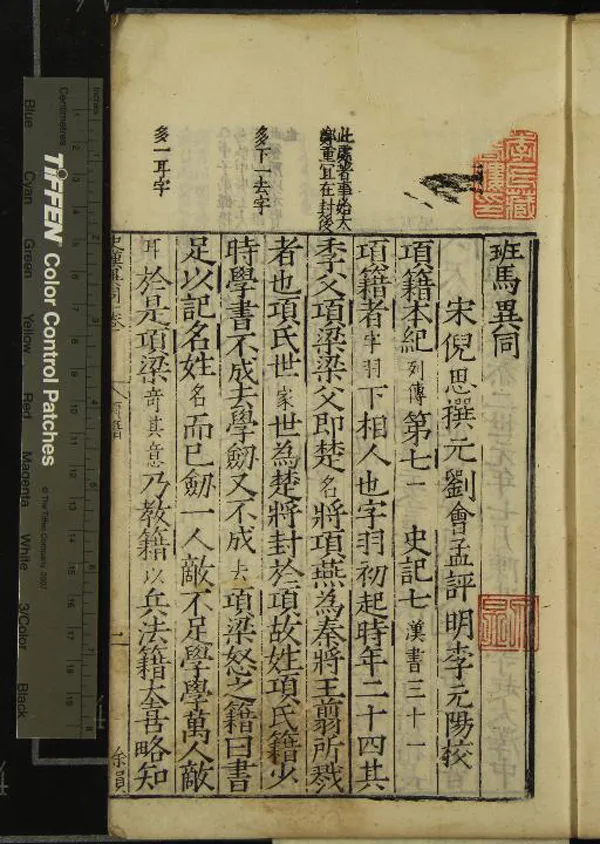 班馬異同
宋倪思撰元劉會孟評明李元陽校
項籍本紀列傳第七一 史記七漢書三十一
項籍者字羽下相人也字羽初起時年二十四其
季父項梁梁父即楚名將項燕為秦將王翦所戮
者也項氏世家世為楚將封於項故姓項氏籍少
時學書不成去學劒又不成去項梁怒之籍曰書
足以記名姓名而已劒一人敵不足學學萬人敵
耳於是項梁奇其意乃教籍以兵法籍大喜略知
此處著事必太
重宜在封後
多下一去字
多一耳字
二
Centimetres
Inches
TIFFEN Color Control Patches
© The Tiffen Company, 2007
Blue
Cyan
Green
Yellow
Red
Magenta
White
3/Color
Black